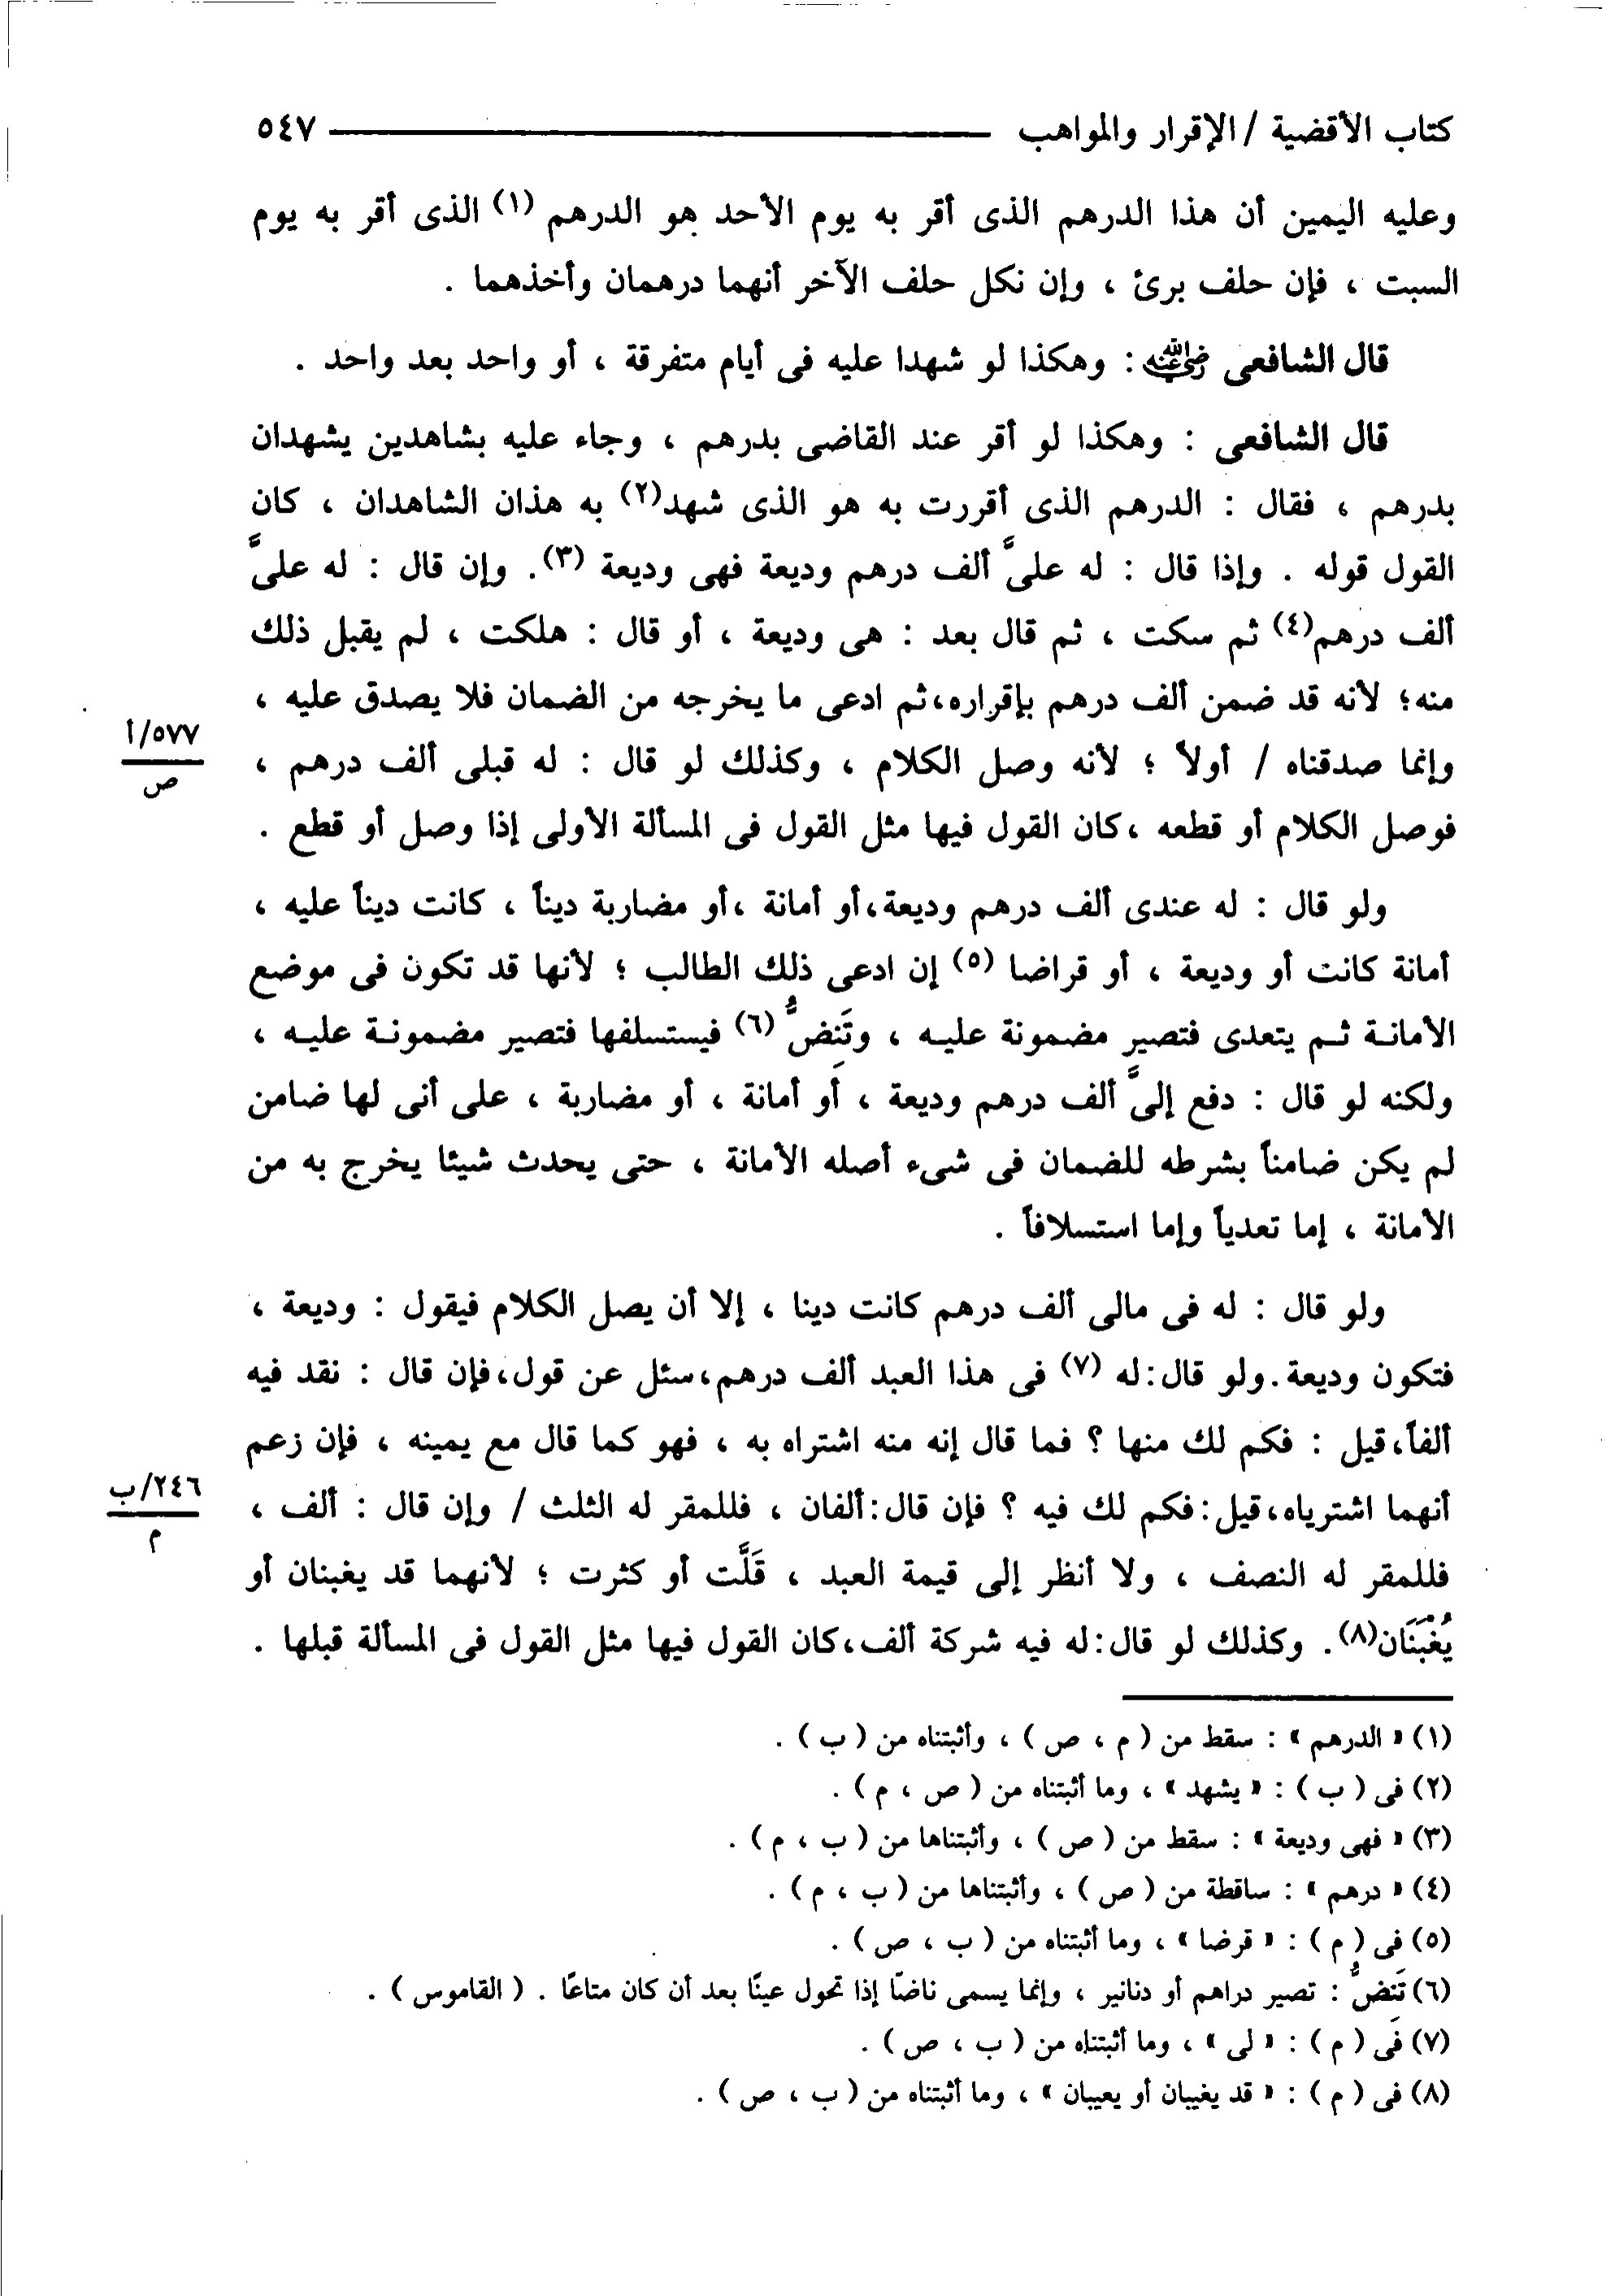 كتاب الأقضية / الإقرار والمواهب ٥٤٧
وعليه اليمين أن هذا الدرهم الذى أقر به يوم الأحد هو الدرهم (١) الذى أقر به يوم
السبت ، فإن حلف برئ ، وإن نكل حلف الآخر أنهما درهمان وأخذهما .
قال الشافعى رضي الله عنه : وهكذا لو شهدا عليه فى أيام متفرقة ، أو واحد بعد واحد .
قال الشافعى : وهكذا لو أقر عند القاضى بدرهم ، وجاء عليه بشاهدين يشهدان
بدرهم ، فقال : الدرهم الذى أقررت به هو الذى شهد(٢) به هذان الشاهدان ، كان
القول قوله . وإذا قال : له علىَّ ألف درهم وديعة فهى وديعة (٣). وإن قال : له علىَّ
ألف درهم(٤) ثم سكت ، ثم قال بعد : هى وديعة ، أو قال : هلكت ، لم يقبل ذلك
منه؛ لأنه قد ضمن ألف درهم بإقراره،ثم ادعى ما يخرجه من الضمان فلا يصدق عليه ،
وإنما صدقناه / أولاً ؛ لأنه وصل الكلام ، وكذلك لو قال : له قبلى ألف درهم ،
٥٧٧/أ
ص
فوصل الكلام أو قطعه ،كان القول فيها مثل القول فى المسألة الأولى إذا وصل أو قطع .
ولو قال : له عندى ألف درهم وديعة،أو أمانة ،أو مضاربة ديناً ، كانت ديناً عليه ،
أمانة كانت أو وديعة ، أو قراضا (٥) إن ادعى ذلك الطالب ؛ لأنها قد تكون فى موضع
الأمانة ثم يتعدى فتصير مضمونة عليه ، وتَنِضُّ (٦) فيستسلفها فتصير مضمونة عليه ،
ولكنه لو قال : دفع إلىَّ ألف درهم وديعة ، أو أمانة ، أو مضاربة ، على أنى لها ضامن
لم يكن ضامناً بشرطه للضمان فى شىء أصله الأمانة ، حتى يحدث شيئا يخرج به من
الأمانة ، إما تعدياً وإما استسلافاً .
ولو قال : له فى مالى ألف درهم كانت دينا ، إلا أن يصل الكلام فيقول : وديعة ،
فتكون وديعة.ولو قال:له (٧) فى هذا العبد ألف درهم،سئل عن قول،فإن قال : نقد فيه
ألفاً،قيل : فكم لك منها ؟ فما قال إنه منه اشتراه به ، فهو كما قال مع يمينه ، فإن زعم
أنهما اشترياه،قيل:فكم لك فيه ؟ فإن قال:ألفان ، فللمقر له الثلث / وإن قال : ألف ،
٢٤٦/ب
م
فللمقر له النصف ، ولا أنظر إلى قيمة العبد ، قَلَّت أو كثرت ؛ لأنهما قد يغبنان أو
يُغْبَنَان(٨). وكذلك لو قال:له فيه شركة ألف،كان القول فيها مثل القول فى المسألة قبلها .
(١) « الدرهم » : سقط من ( م ، ص ) ، وأثبتناه من ( ب ) .
(٢) فى ( ب ) : « يشهد » ، وما أثبتناه من ( ص ، م ) .
(٣) « فهى وديعة » : سقط من ( ص ) ، وأثبتناها من ( ب ، م ) .
(٤) « درهم » : ساقطة من ( ص ) ، وأثبتناها من ( ب ، م ) .
(٥) فى ( م ) : « قرضا » ، وما أثبتناه من ( ب ، ص ) .
(٦) تَنِضُّ : تصير دراهم أو دنانير ، وإنما يسمى ناضّا إذا تحول عينًا بعد أن كان متاعًا . ( القاموس ) .
(٧) فى ( م ) : « لى » ، وما أثبتناه من ( ب ، ص ) .
(٨) فى ( م ) : « قد يغيبان أو يعيبان » ، وما أثبتناه من ( ب ، ص ) .